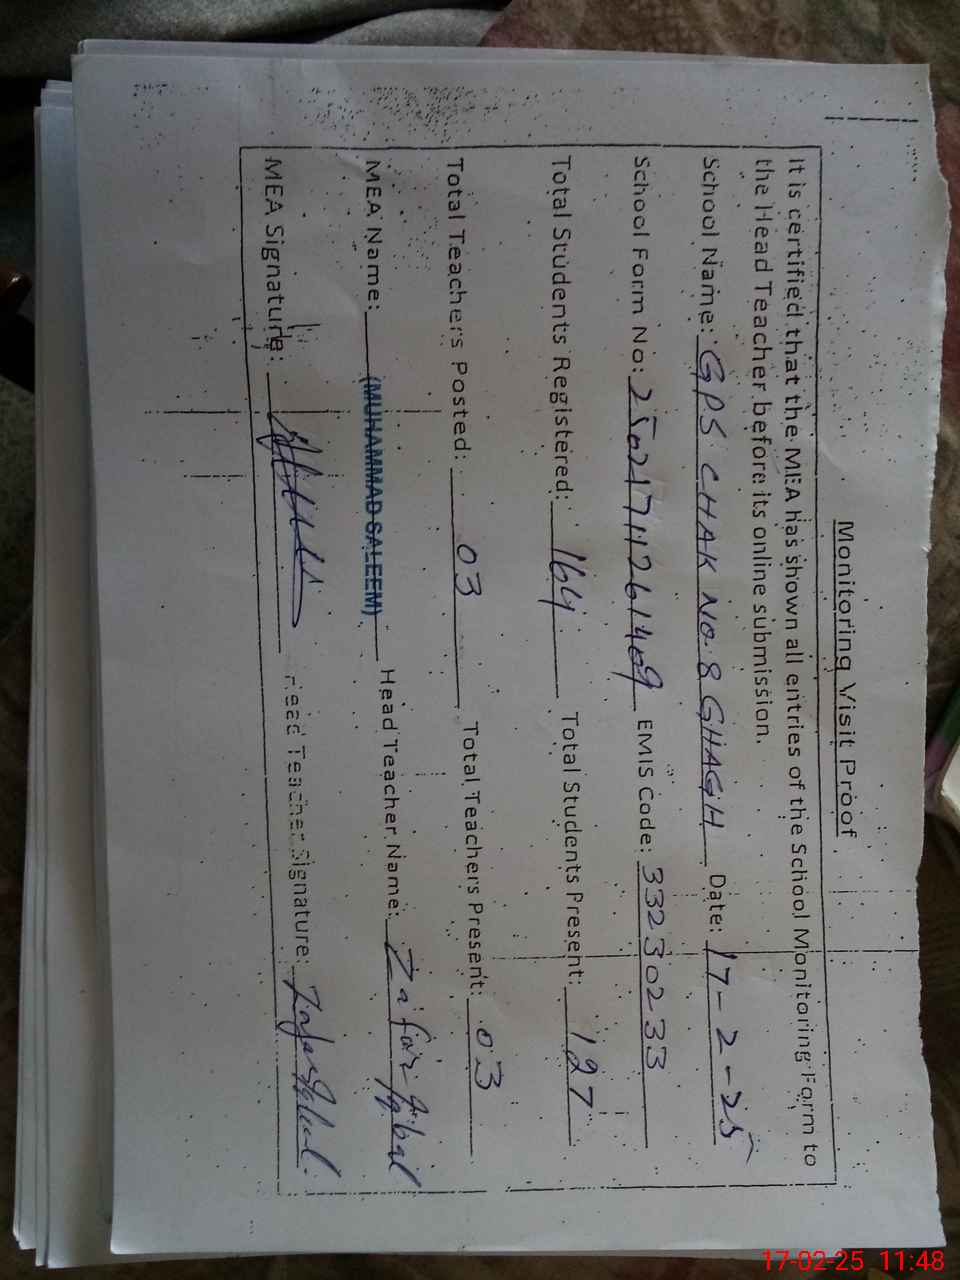 Monitoring Visit Proof
It is certified that the MEA has shown all entries of the School Monitoring Form to
the Head Teacher before its online submission.
School Name: GPS CHAK NO. 8 GHAGH Date: 17-2-25
School Form No: 25021711261409 EMIS Code: 33230233
Total Students Registered: 164 Total Students Present: 127
Total Teachers Posted: 03 Total Teachers Present: 03
MEA Name: (MUHAMMAD SALEEM) Head Teacher Name: Zafar Iqbal
MEA Signature: Head Teacher Signature: Zafar Iqbal
17-02-25 11:48